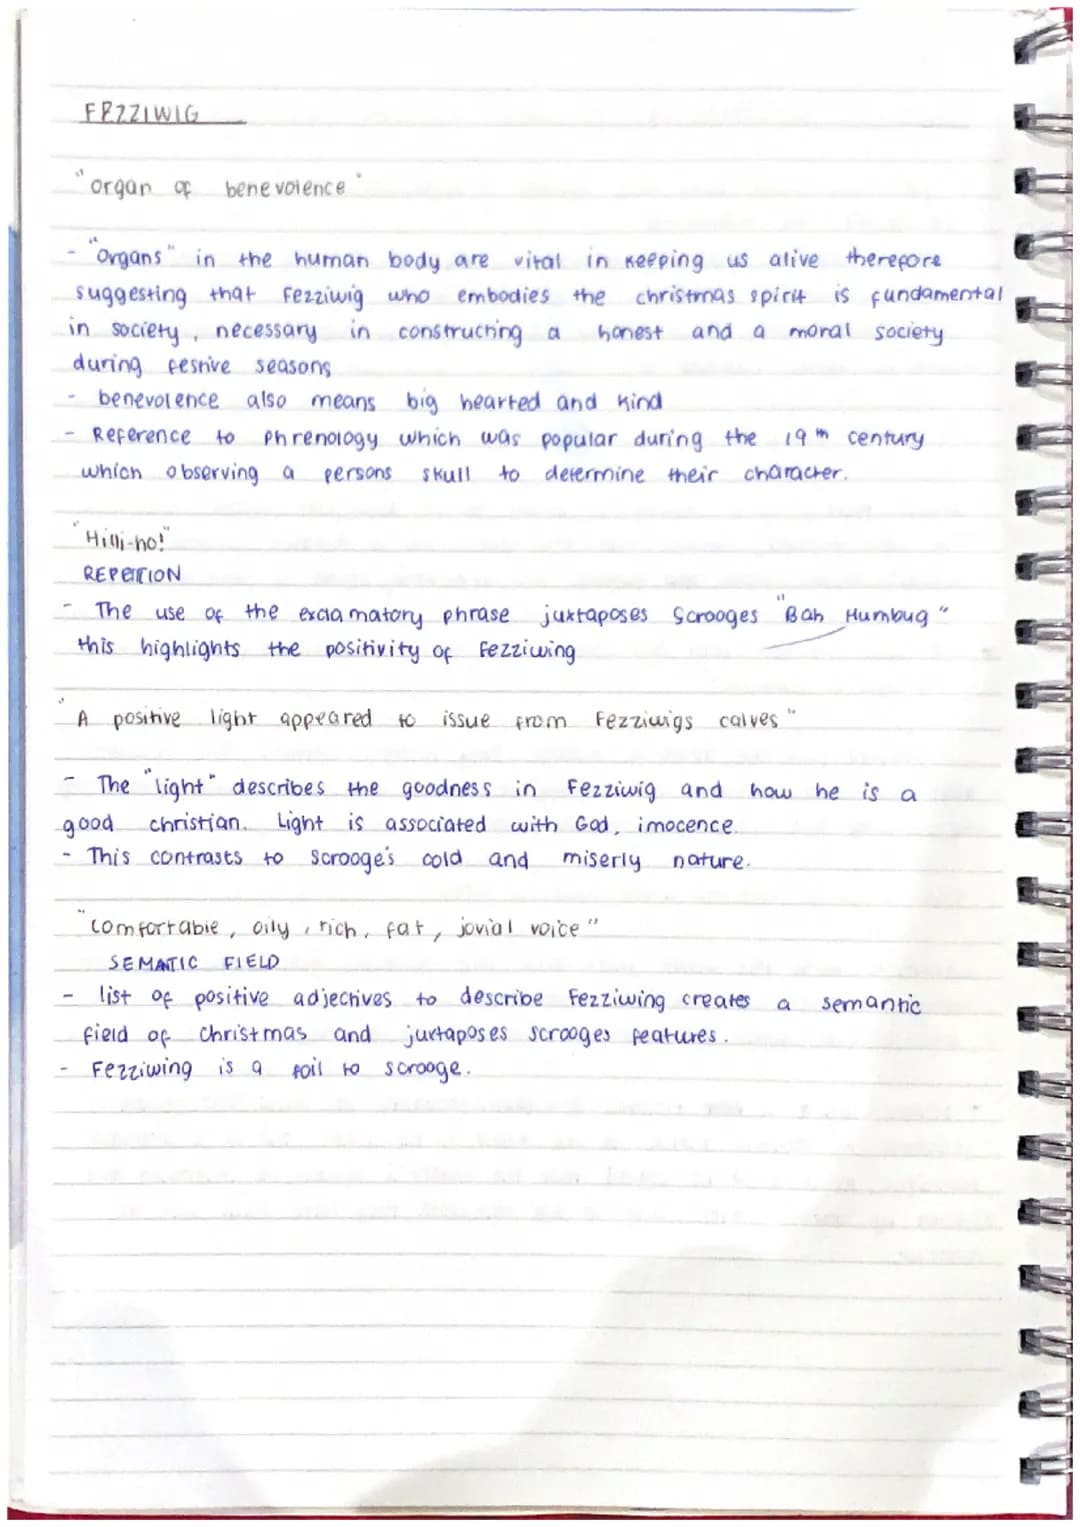 FEZZIWIG
"organ of benevolence"
- "Organs" in the human body are vital in keeping us alive therefore
suggesting that Fezziwig who embodies the christmas spirit is fundamental
in society, necessary in constructing a honest and a moral society
during festive seasons
- benevolence also means big hearted and kind
- Reference to phrenology which was popular during the 19th century
which observing a persons skull to determine their character.
"Hilli-ho!"
REPETITION
- The use of the exclamatory phrase juxtaposes Scrooges "Bah Humbug"
this highlights the positivity of Fezziwing
"A positive light appeared to issue from Fezziwigs calves"
- The "light" describes the goodness in Fezziwig and how he is a
good christian. Light is associated with God, innocence.
- This contrasts to Scrooge's cold and miserly nature.
"comfortable, oily, rich, fat, jovial voice"
SEMATIC FIELD
- list of positive adjectives to describe Fezziwing creates a semantic
field of Christmas and juxtaposes scrooges features.
- Fezziwing is a foil to scrooge.